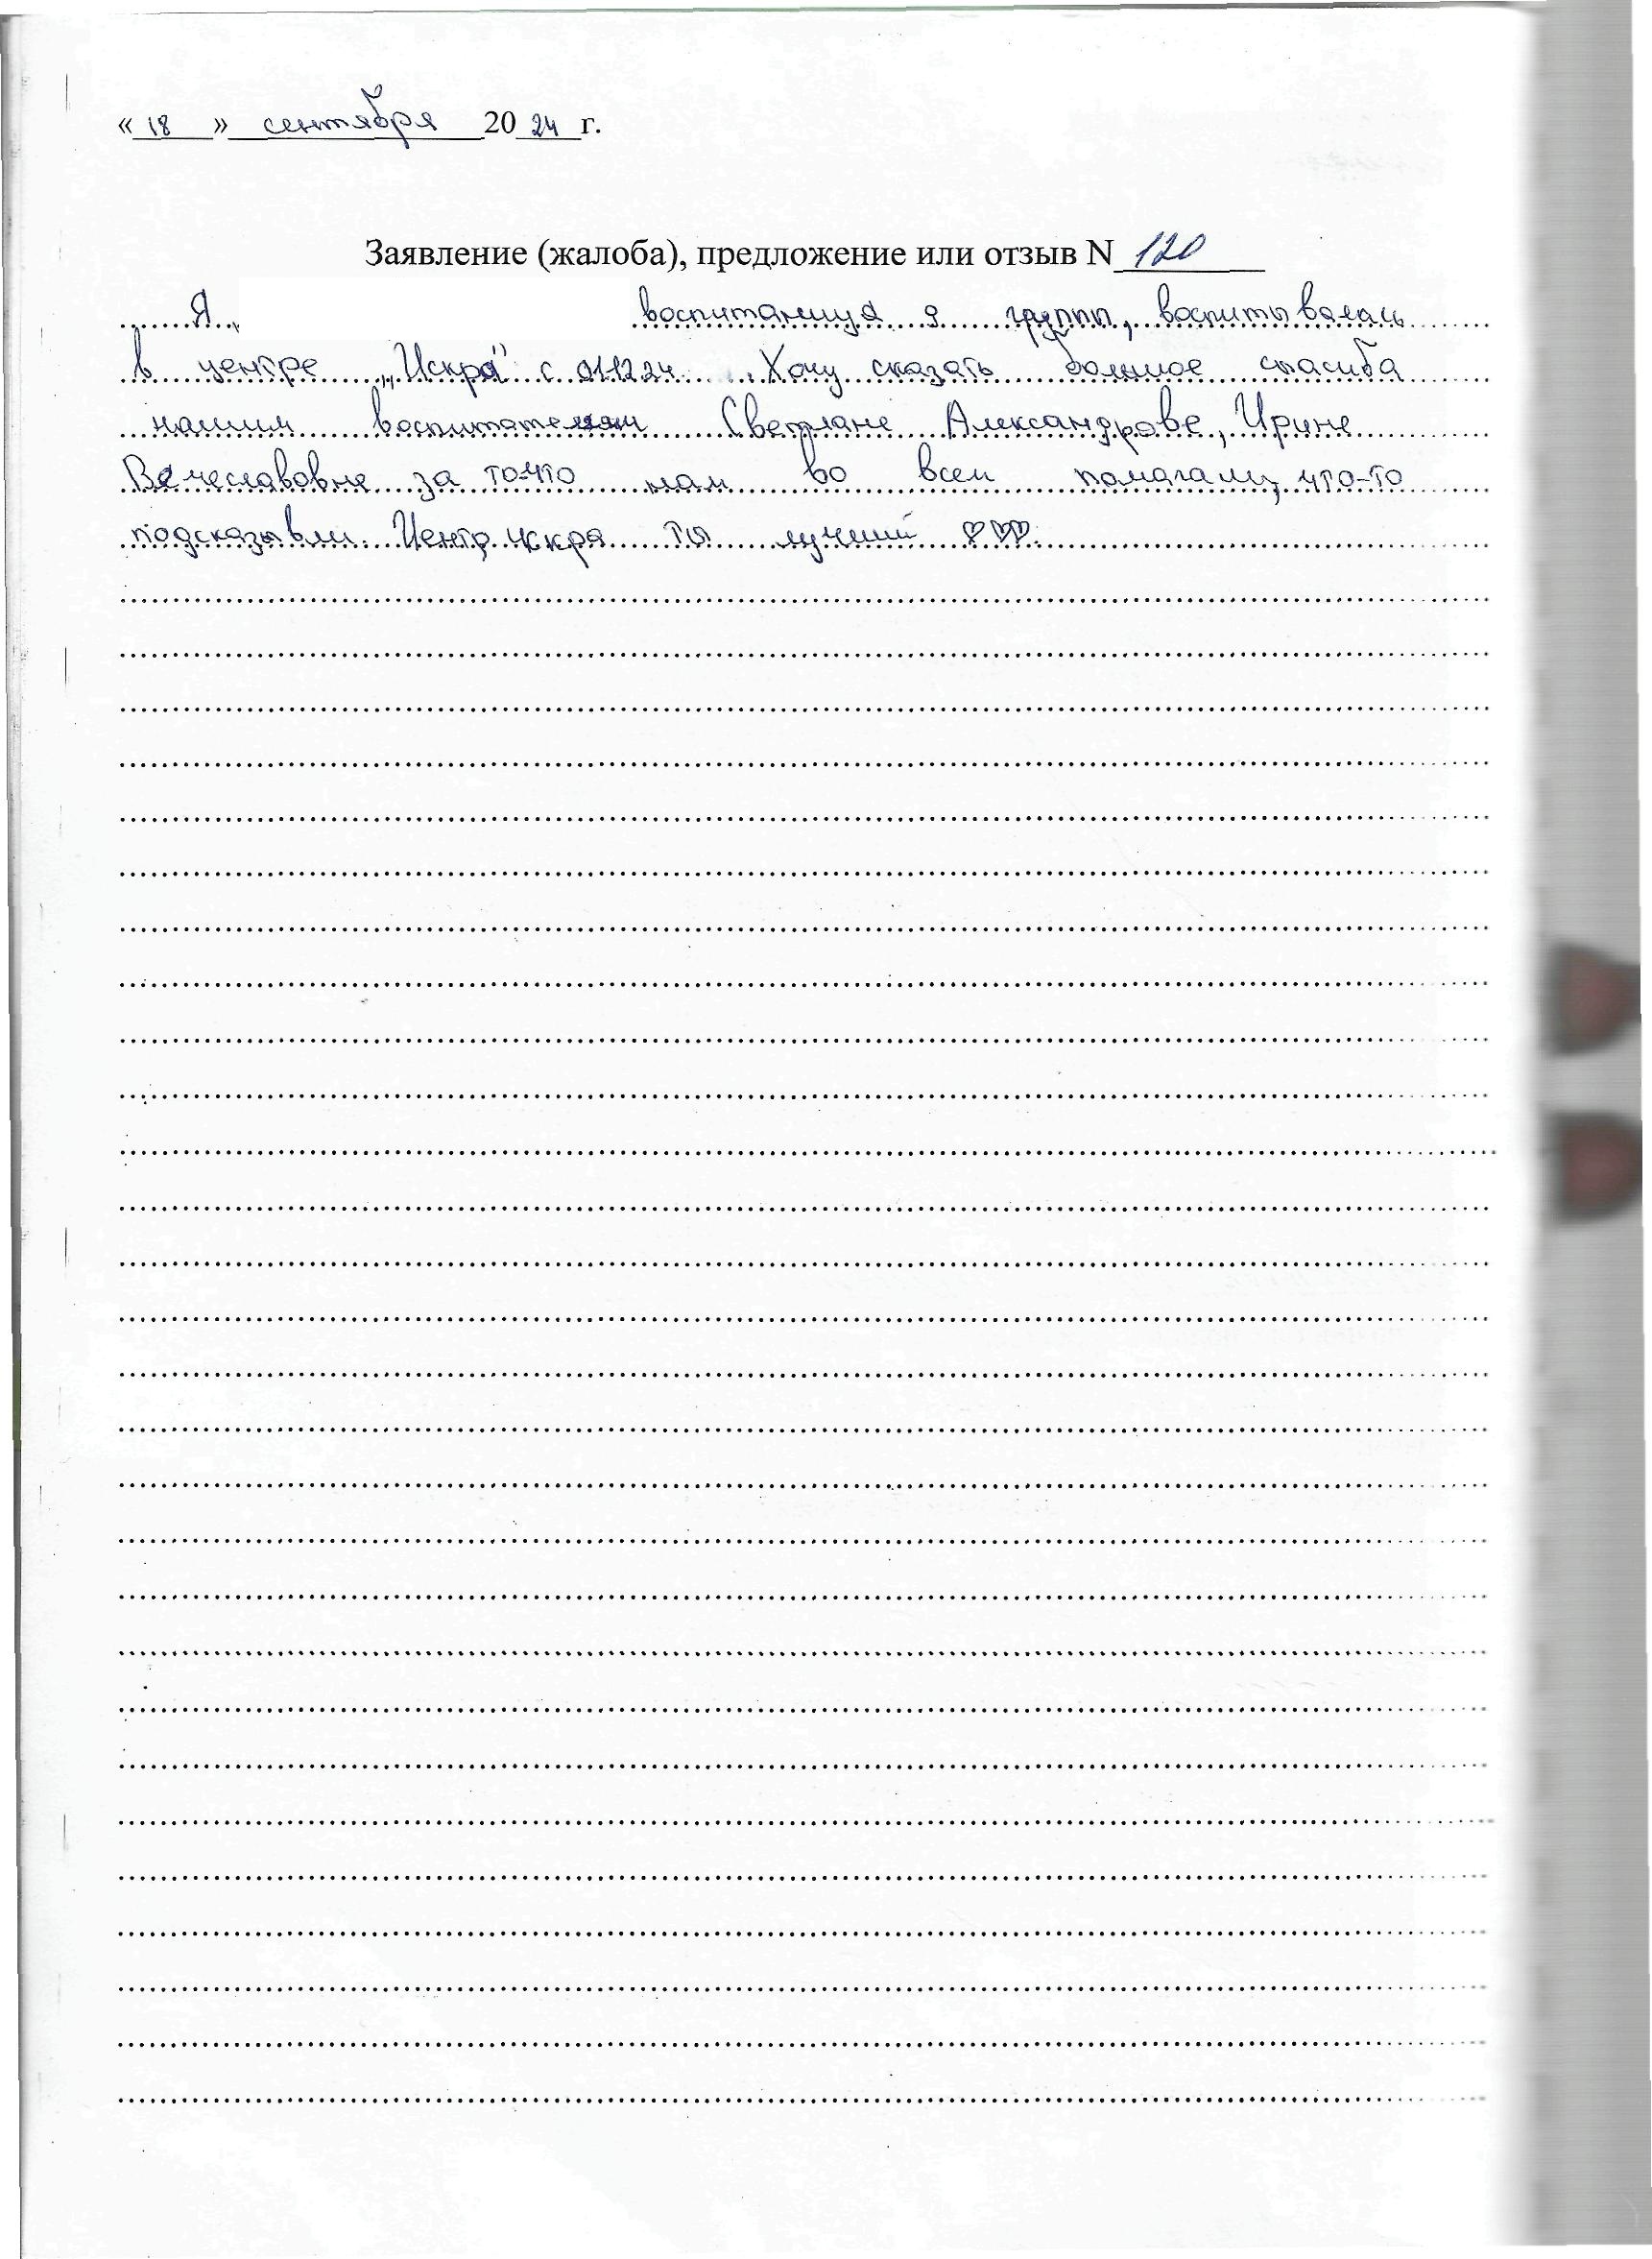 « 18 » сентября 20 24 г.
Заявление (жалоба), предложение или отзыв N 120
Я, воспитаница 9 группы, воспитывалась
в центре „Искра" с 01.12.24. Хочу сказать большое спасиба
нашим воспитателям Светлане Александрове, Ирине
Вечеславовне за то-что нам во всем помагали, что-то
подсказывли. Центр искра ты лучший ♡♡♡.